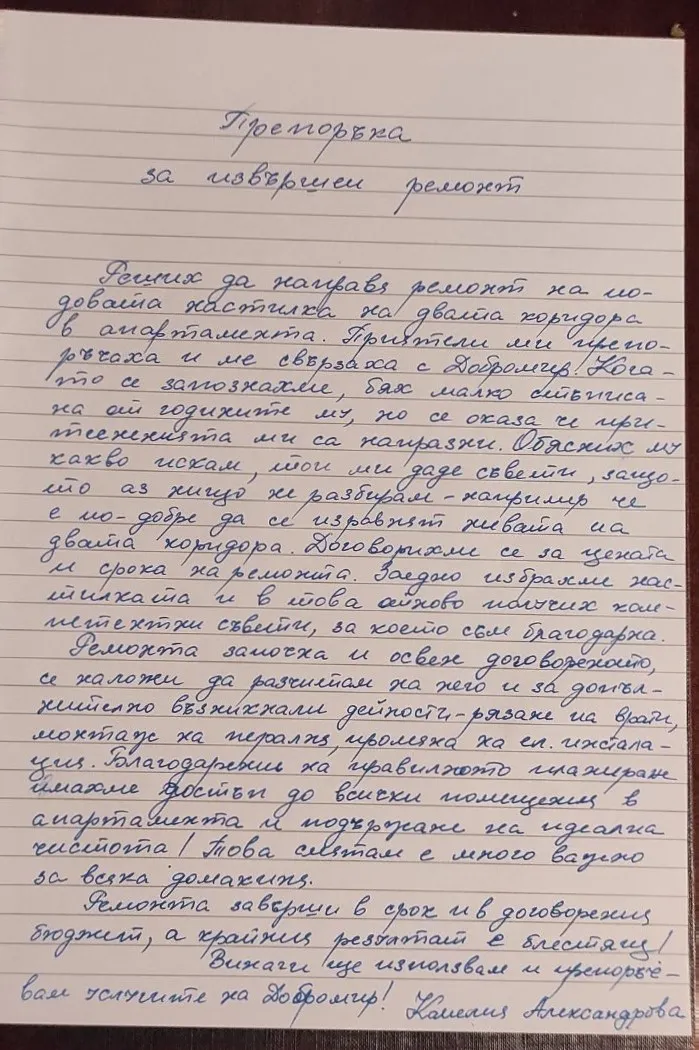 Препоръка
за извършен ремонт
Реших да направя ремонт на по-
довата настилка на двата коридора
в апартамента. Приятели ми препо-
ръчаха и ме свързаха с Добромир. Кога-
то се запознахме, бях малко стъписа-
на от годините му, но се оказа че при-
тесненията ми са напразни. Обясних му
какво искам, той ми даде съвети, защо-
то аз нищо не разбирам - например че
е по-добре да се изравнят нивата на
двата коридора. Договорихме се за цената
и срока на ремонта. Заедно избрахме нас-
тилката и в това отново получих ком-
петентни съвети, за което съм благодарна.
Ремонта започна и освен договореното,
се наложи да разчитам на него и за допъл-
нително възникнали дейности - рязане на врати,
монтаж на пералня, промяна на ел. инстала-
ция. Благодарение на правилното планиране
имахме достъп до всички помещения в
апартамента и подържане на идеална
чистота! Това смятам е много важно
за всяка домакиня.
Ремонта завърши в срок и в договорения
бюджет, а крайния резултат е блестящ!
Винаги ще използвам и препоръч-
вам услугите на Добромир! Камелия Александрова